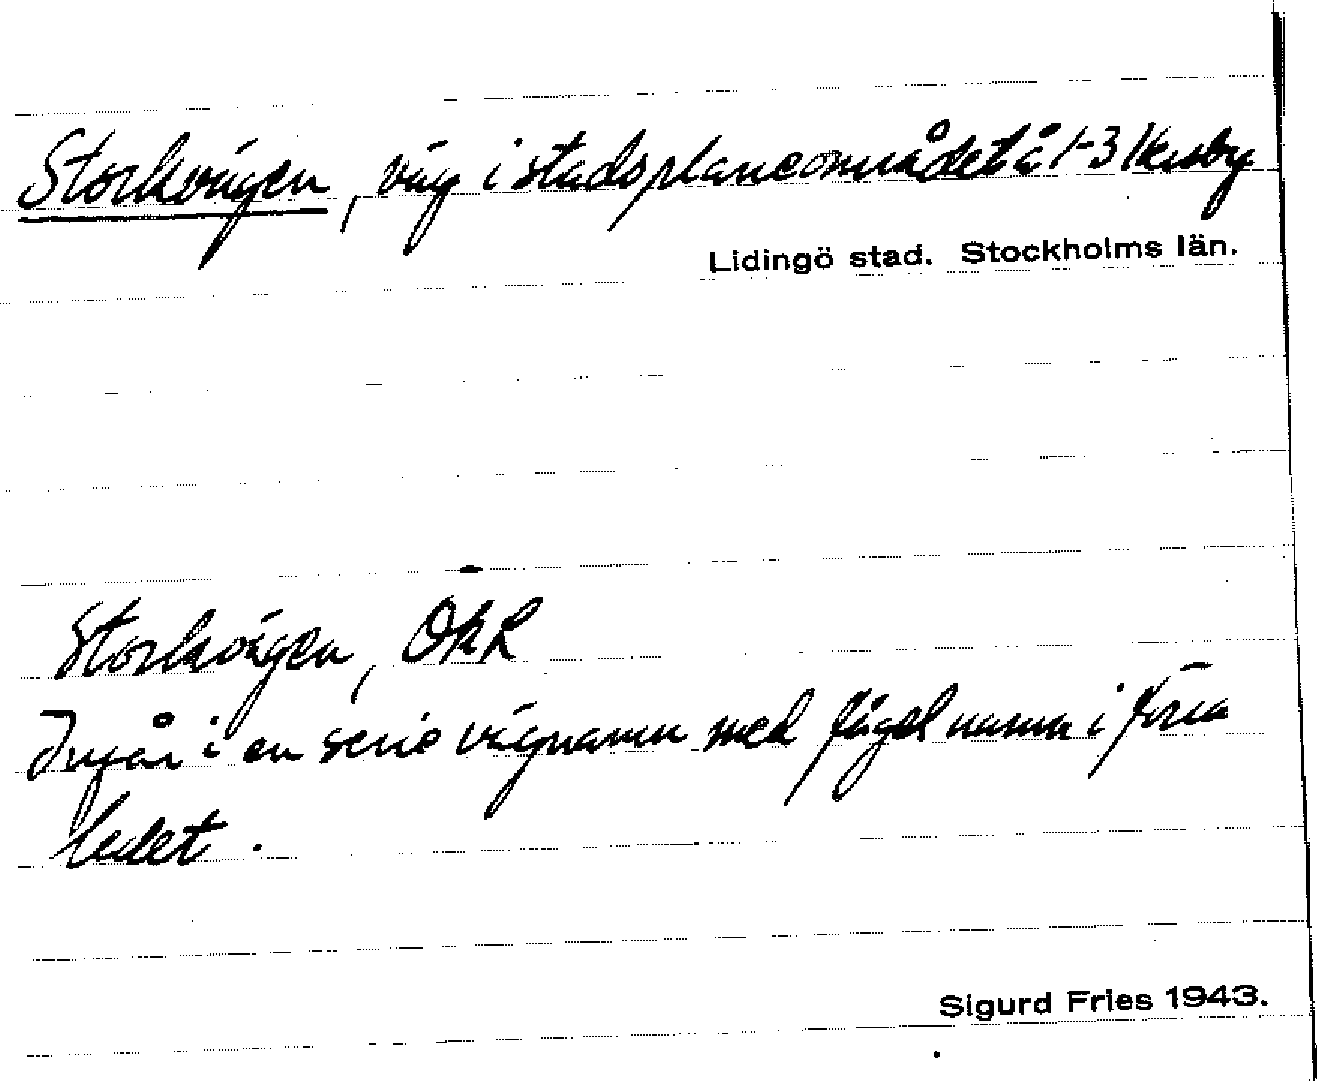 Storkvägen, väg i stadsplaneområdet å 1-3 Kersby
Lidingö stad. Stockholms län.
Storkvägen, OKR
Ingår i en serie vägnamn med fågelnamn i förra
ledet.
Sigurd Fries 1943.